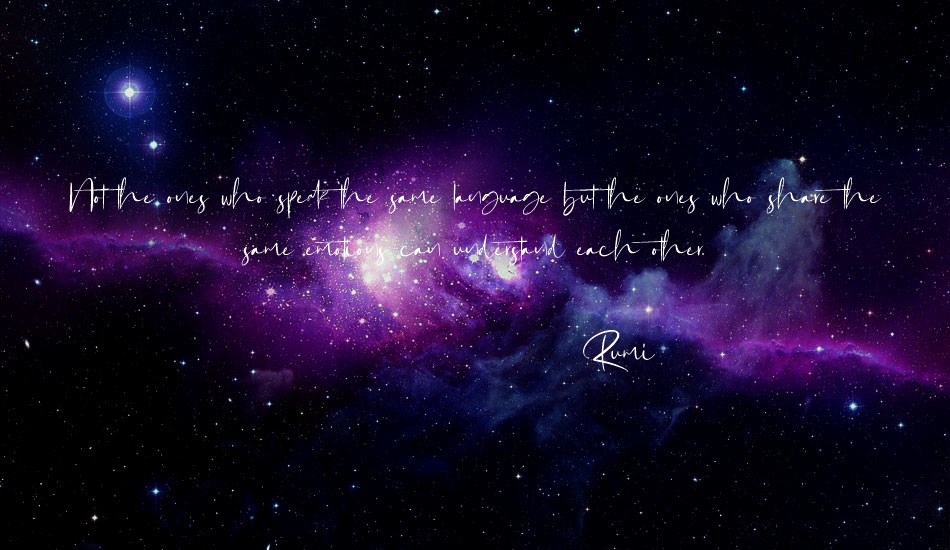 Not the ones who speak the same language but the ones who share the
same emotions can understand each other.
Rumi